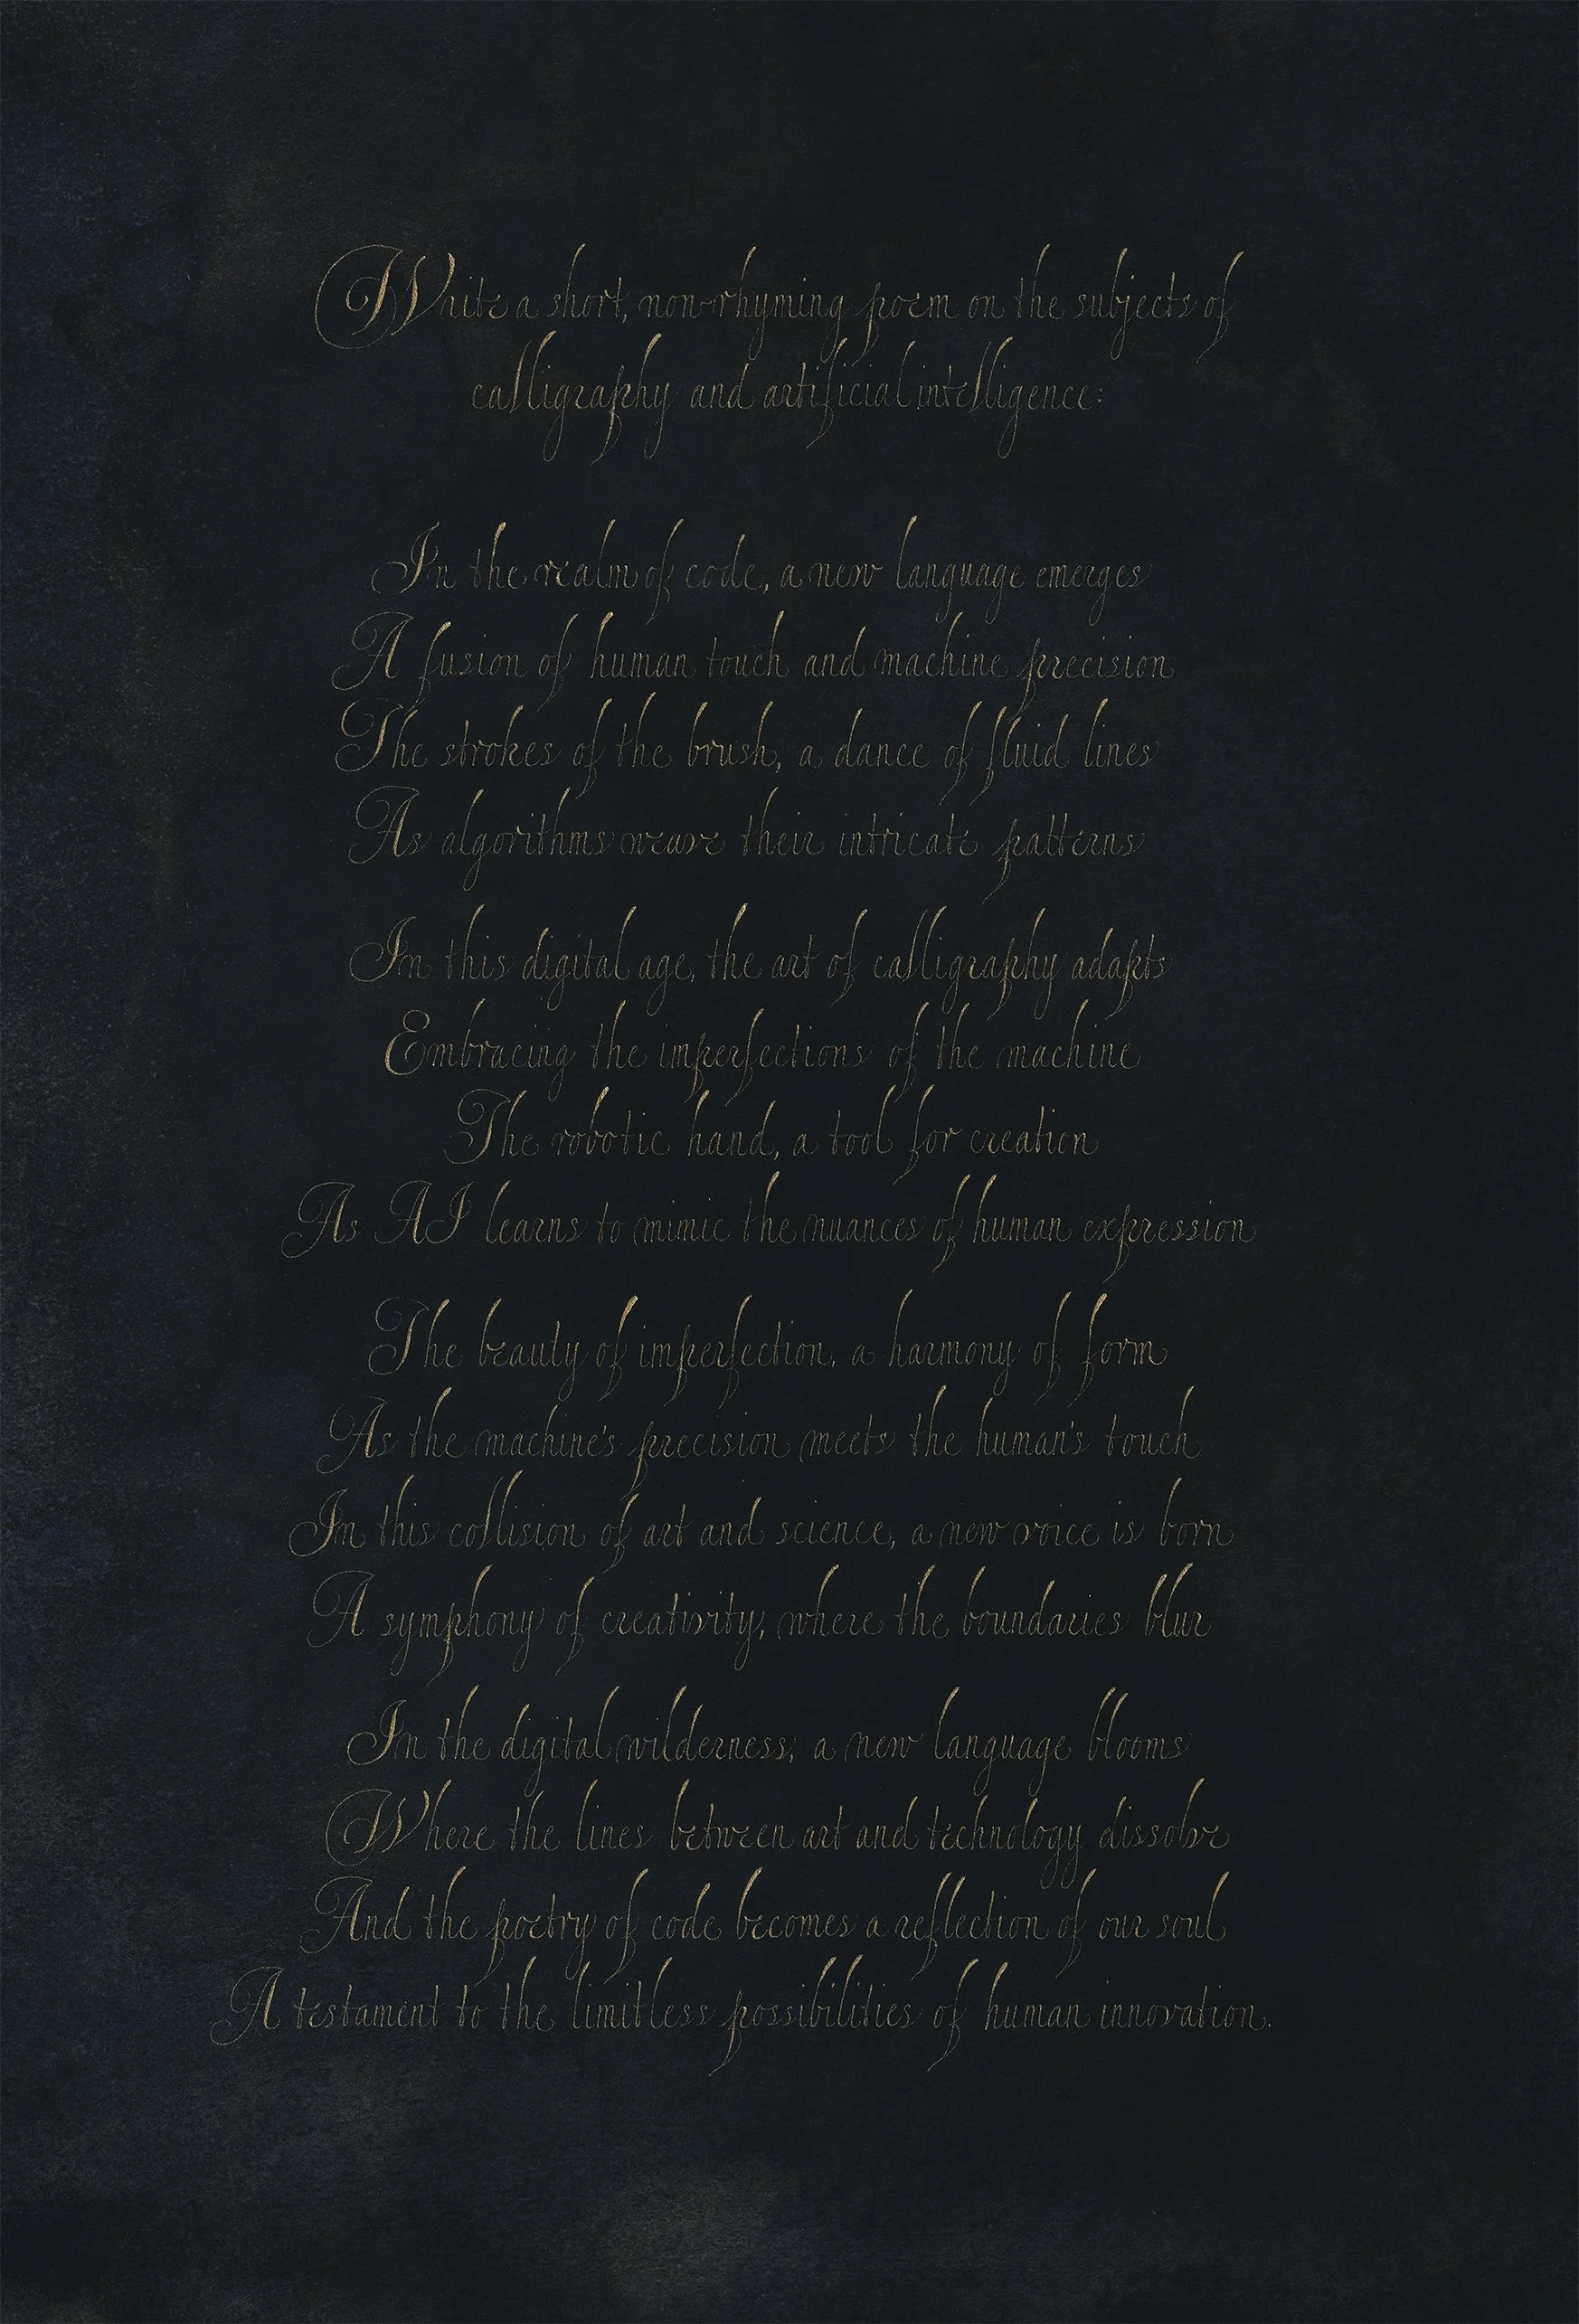 Write a short, non-rhyming poem on the subjects of
calligraphy and artificial intelligence:
In the realm of code, a new language emerges
A fusion of human touch and machine precision
The strokes of the brush, a dance of fluid lines
As algorithms weave their intricate patterns
In this digital age, the art of calligraphy adapts
Embracing the imperfections of the machine
The robotic hand, a tool for creation
As AI learns to mimic the nuances of human expression
The beauty of imperfection, a harmony of form
As the machine's precision meets the human's touch
In this collision of art and science, a new voice is born
A symphony of creativity, where the boundaries blur
In the digital wilderness, a new language blooms
Where the lines between art and technology dissolve
And the poetry of code becomes a reflection of our soul
A testament to the limitless possibilities of human innovation.